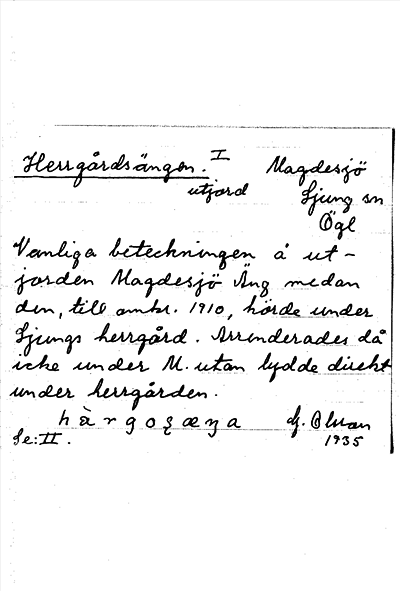 Herrgårdsängen. I Magdesjö
utjord Ljung sn
Ögl
Vanliga beteckningen å ut-
jorden Magdesjö Äng medan
den, till omkr. 1910, hörde under
Ljungs herrgård. Arrenderades då
icke under M. utan lydde direkt
under herrgården.
G. Olsson
Se: II. 1935